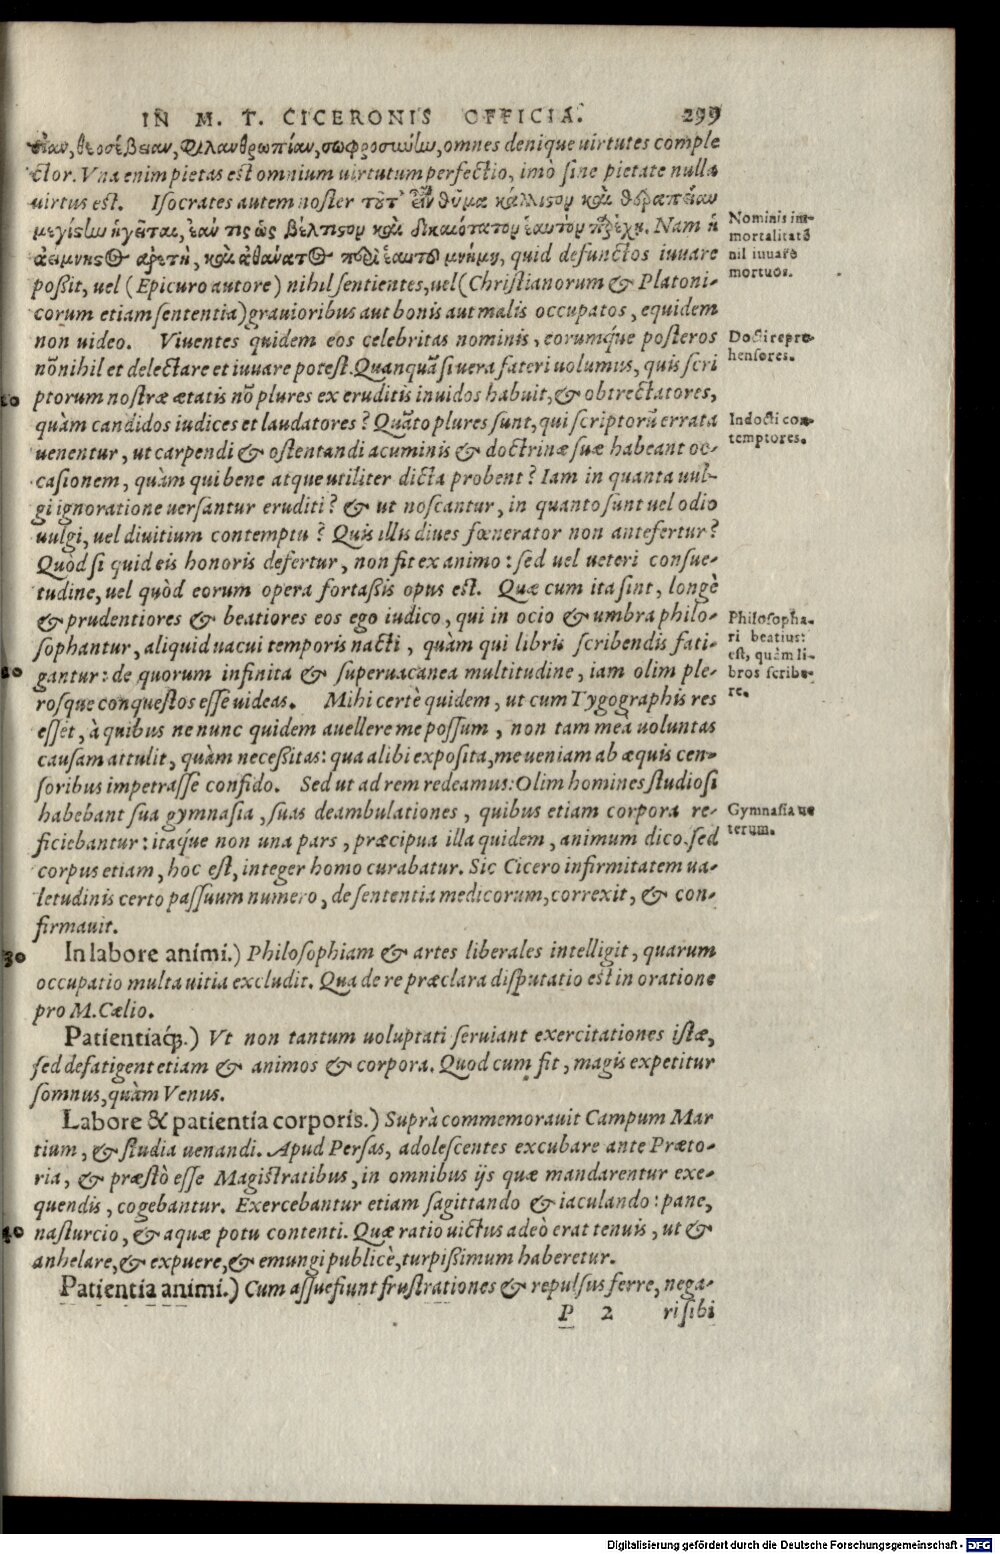 IN M. T. CICERONIS OFFICIA. 299
θεοσέβειαν, φιλανθρωπίαν, σωφροσύνην, omnes denique uirtutes comple
ctor. Vna enim pietas est omnium uirtutum perfectio, imò sine pietate nulla
uirtus est. Isocrates autem noster τοῦτ' θῦμα κάλλιστον καὶ θεραπείαν
μεγίστην ἡγεῖται, ἐὰν τις ὡς βέλτιστον καὶ δικαιότατον ἑαυτὸν παρέχῃ. Nam ἡ
ἀείμνηστος ἀρετὴ, καὶ ἀθάνατος περὶ ἑαυτοῦ μνήμη, quid defunctos iuuare
poßit, uel (Epicuro autore) nihil sentientes, uel (Christianorum & Platoni-
corum etiam sententia) grauioribus aut bonis aut malis occupatos, equidem
non uideo. Viuentes quidem eos celebritas nominis, eorumq́ue posteros
nõnihil et delectare et iuuare potest. Quanquã si uera fateri uolumus, quis scri
10 ptorum nostræ ætatis nõ plures ex eruditis inuidos habuit, & obtrectatores,
quàm candidos iudices et laudatores? Quãto plures sunt, qui scriptorũ errata
uenentur, ut carpendi & ostentandi acuminis & doctrinæ suæ habeant oc-
casionem, quàm qui bene atque utiliter dicta probent? Iam in quanta uul-
gi ignoratione uersantur eruditi? & ut noscantur, in quanto sunt uel odio
uulgi, uel diuitium contemptu? Quis illis diues fœnerator non antefertur?
Quòd si quid eis honoris defertur, non fit ex animo: sed uel ueteri consue-
tudine, uel quòd eorum opera fortaßis opus est. Quæ cum ita sint, longè
& prudentiores & beatiores eos ego iudico, qui in ocio & umbra philo-
sophantur, aliquid uacui temporis nacti, quàm qui libris scribendis fati-
20 gantur: de quorum infinita & superuacanea multitudine, iam olim ple-
rosque conquestos esse uideas. Mihi certè quidem, ut cum Tygographis res
esset, à quibus ne nunc quidem auellere me possum, non tam mea uoluntas
causam attulit, quàm neceßitas: qua alibi exposita, me ueniam ab æquis cen-
soribus impetrasse confido. Sed ut ad rem redeamus: Olim homines studiosi
habebant sua gymnasia, suas deambulationes, quibus etiam corpora re-
ficiebantur: itaq́ue non una pars, præcipua illa quidem, animum dico, sed
corpus etiam, hoc est, integer homo curabatur. Sic Cicero infirmitatem ua-
letudinis certo passuum numero, de sententia medicorum, correxit, & con-
firmauit.
30 In labore animi.) Philosophiam & artes liberales intelligit, quarum
occupatio multa uitia excludit. Qua de re præclara disputatio est in oratione
pro M. Cælio.
Patientiaq́;.) Vt non tantum uoluptati seruiant exercitationes istæ,
sed defatigent etiam & animos & corpora. Quod cum fit, magis expetitur
somnus, quàm Venus.
Labore & patientia corporis.) Suprà commemorauit Campum Mar
tium, & studia uenandi. Apud Persas, adolescentes excubare ante Præto-
ria, & præstò esse Magistratibus, in omnibus ijs quæ mandarentur exe-
quendis, cogebantur. Exercebantur etiam sagittando & iaculando: pane,
40 nasturcio, & aquæ potu contenti. Quæ ratio uictus adeò erat tenuis, ut &
anhelare, & expuere, & emungi publicè, turpißimum haberetur.
Patientia animi.) Cum assuefiunt frustrationes & repulsus ferre, nega-
P 2 ri sibi
Nominis im-
mortalitatẽ
nil iuuare
mortuos.
Docti repre-
hensores.
Indocti con-
temptores.
Philosopha-
ri beatius
est, quàm li-
bros scribe-
re.
Gymnasia ue
terum.
Digitalisierung gefördert durch die Deutsche Forschungsgemeinschaft - DFG